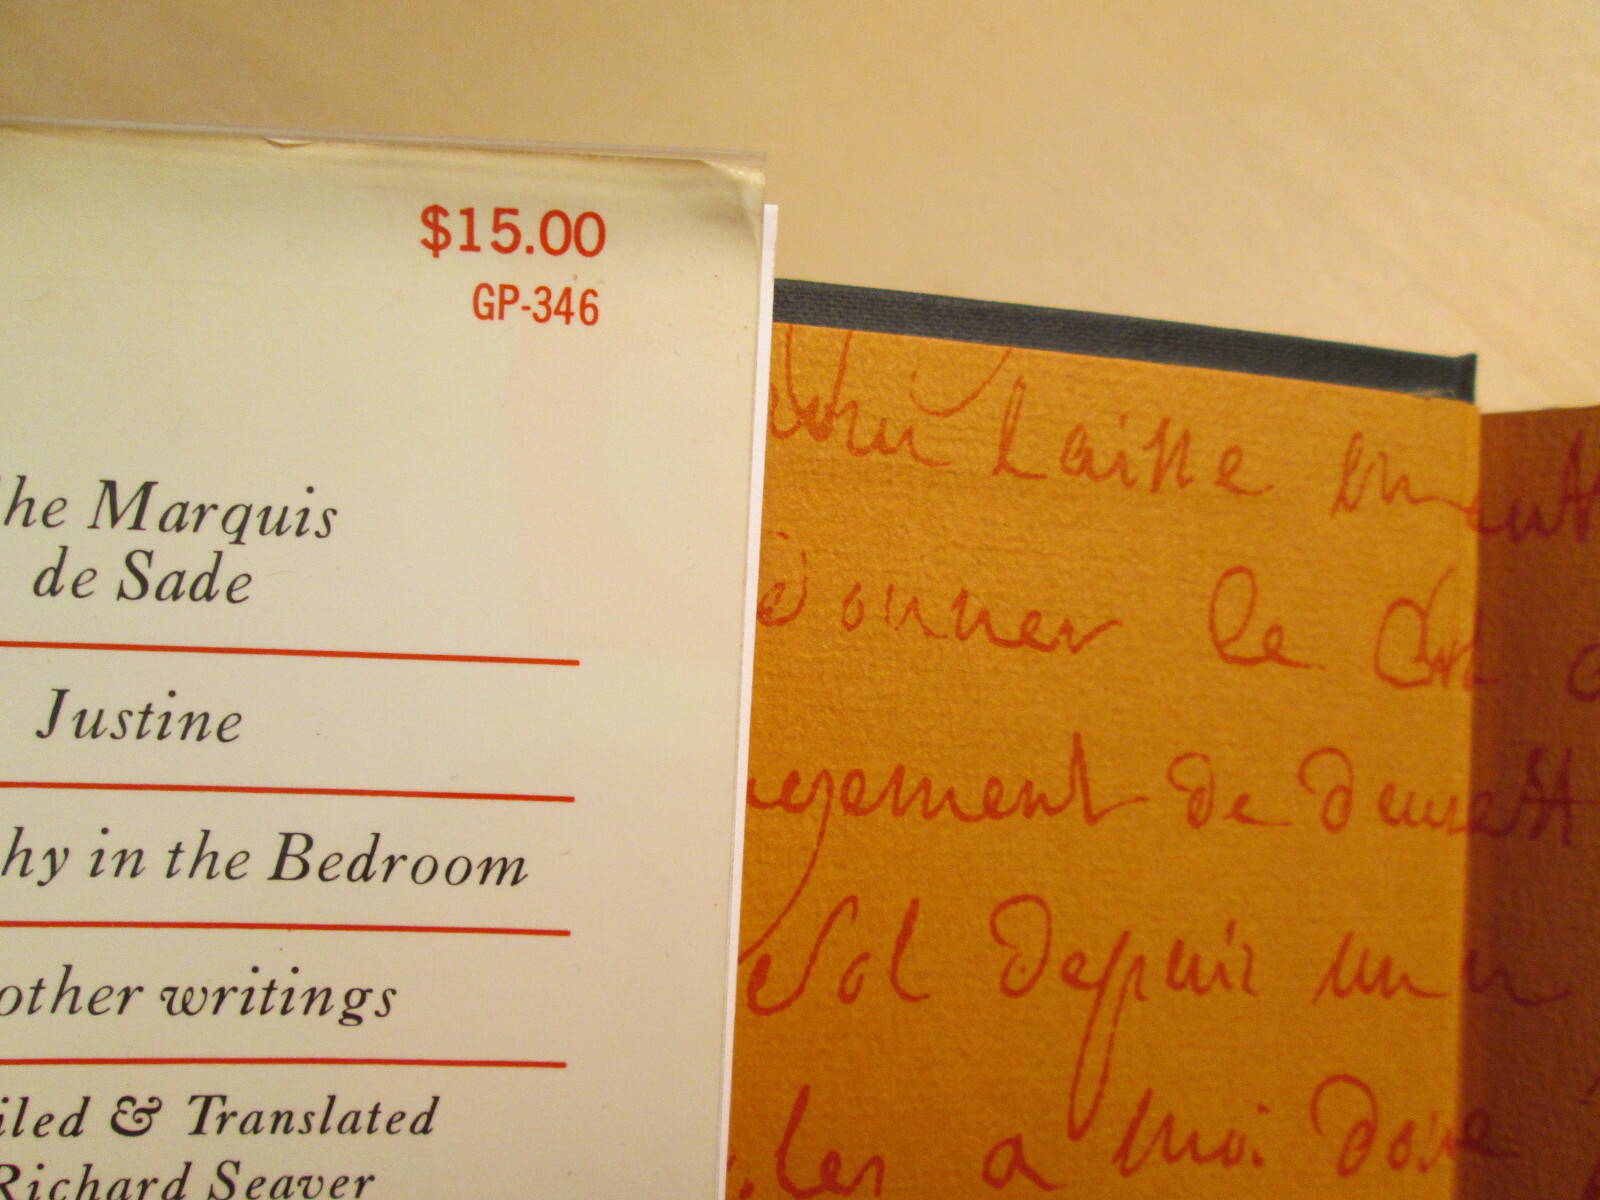 $15.00
GP-346
he Marquis
de Sade
Justine
hy in the Bedroom
other writings
iled & Translated
Richard Seaver
laisse
donner le
gement de
sol depuis un
a moi